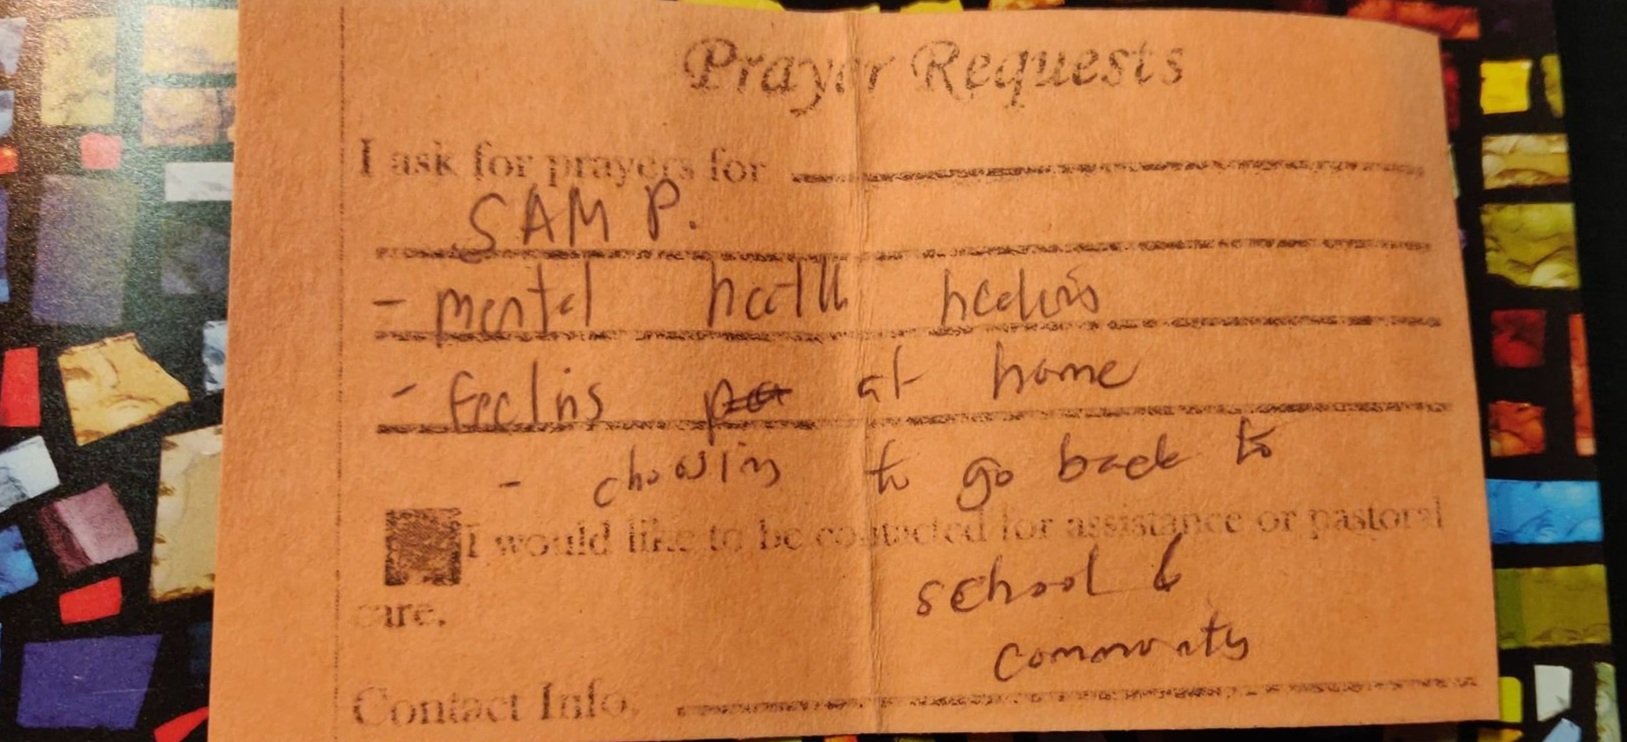 Prayer Requests
I ask for prayers for
SAM P.
- mental health healing
- feeling at home
- choosing to go back to
I would like to be contacted for assistance or pastoral
school &
care.
community
Contact Info.